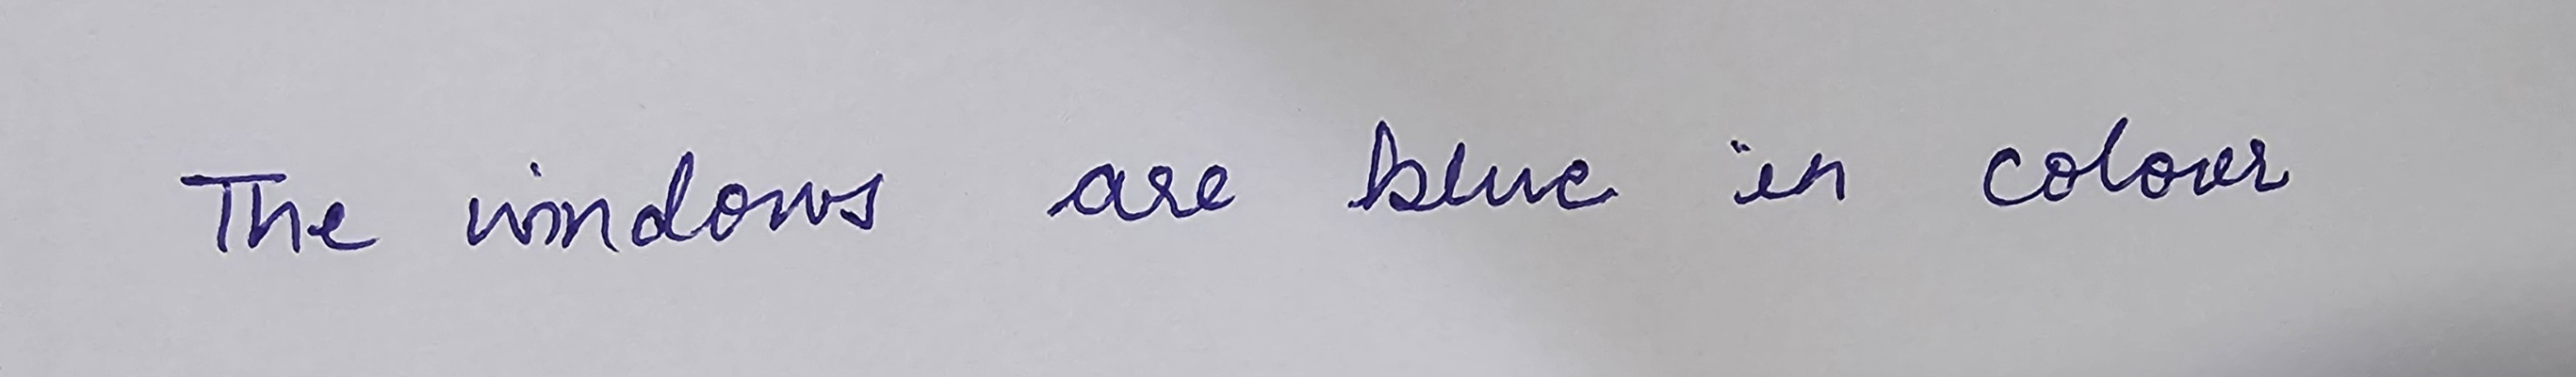 The windows are blue in colour